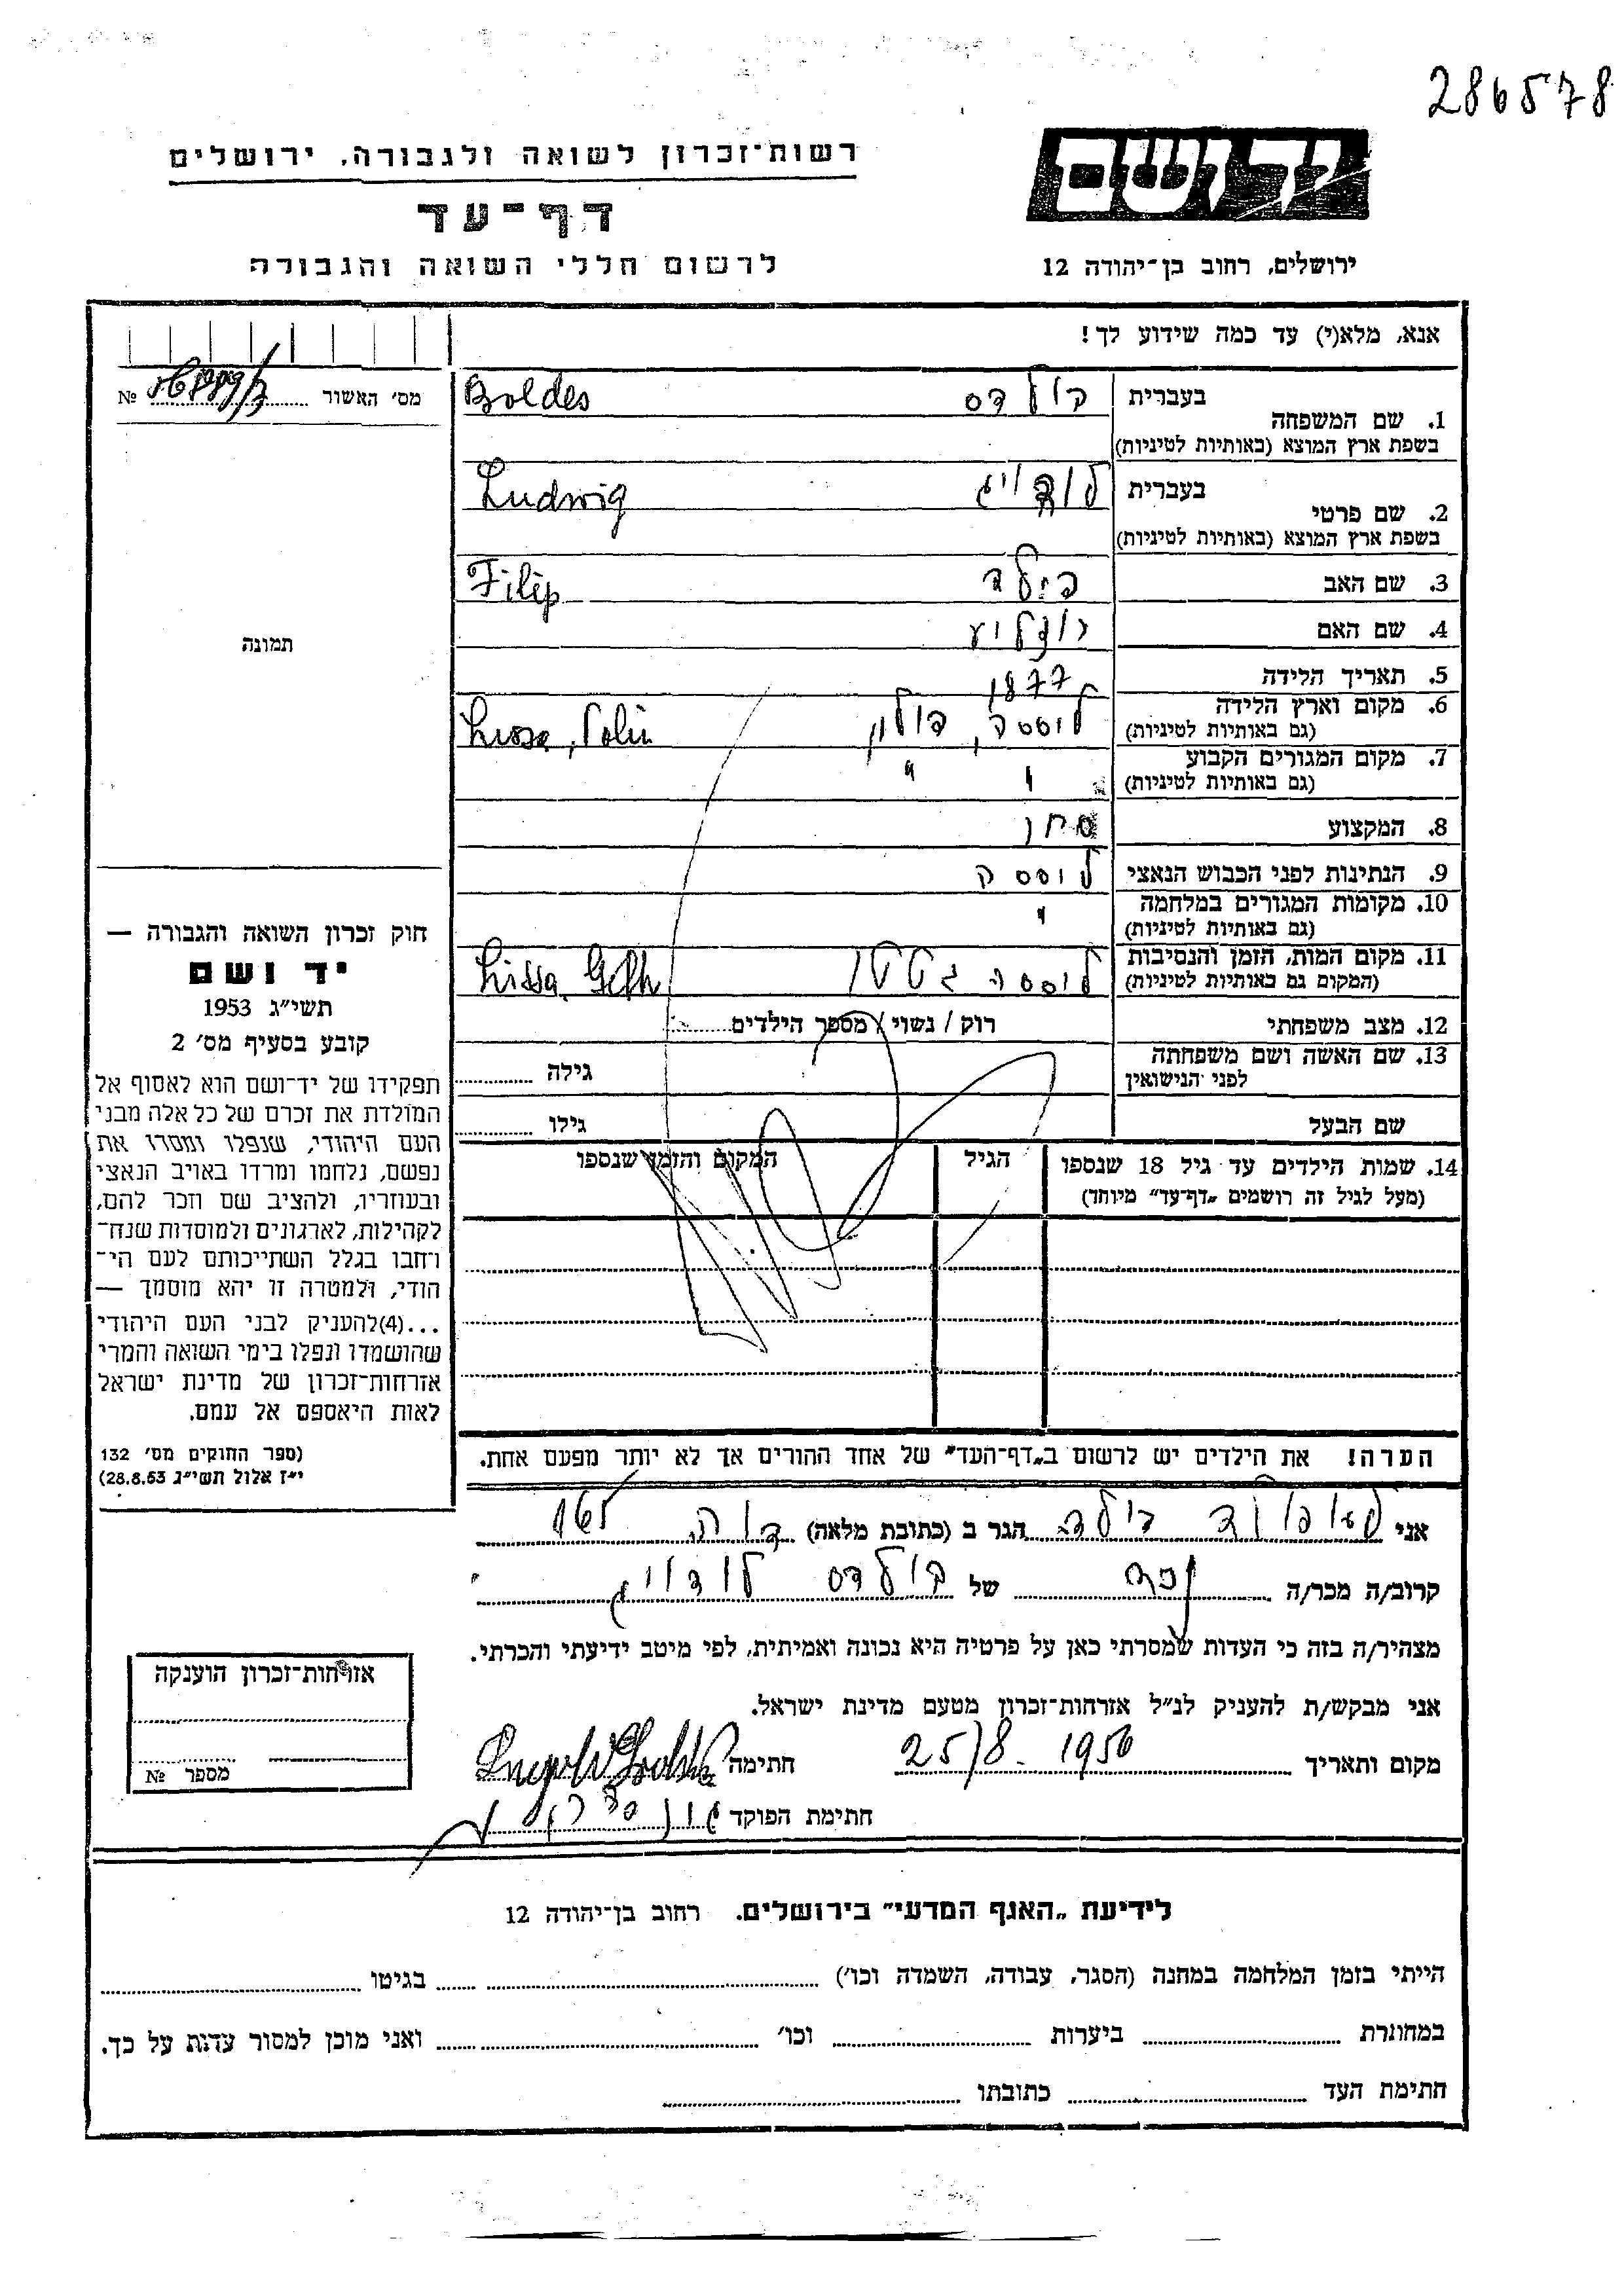 286578
יד ושם
רשות־זכרון לשואה ולגבורה, ירושלים
דף־עד
ירושלים, רחוב בן־יהודה 12
לרשום חללי השואה והגבורה
אנא, מלא(י) עד כמה שידוע לך!
מס׳ האשור № 
בעברית בולדס Boldes
1. שם המשפחה
בשפת ארץ המוצא (באותיות לטיניות)
בעברית לודויג Ludwig
2. שם פרטי
בשפת ארץ המוצא (באותיות לטיניות)
3. שם האב Filip
4. שם האם
5. תאריך הלידה 1877
6. מקום וארץ הלידה ליססה, פולין
(גם באותיות לטיניות)
7. מקום המגורים הקבוע " "
(גם באותיות לטיניות)
8. המקצוע סחר
9. הנתינות לפני הכבוש הנאצי ליססה
10. מקומות המגורים במלחמה "
(גם באותיות לטיניות)
11. מקום המות, הזמן והנסיבות ליססה גטטו Lissa
(המקום גם באותיות לטיניות)
12. מצב משפחתי רוק / נשוי / מספר הילדים
13. שם האשה ושם משפחתה
לפני הנישואין גילה
שם הבעל גילו
14. שמות הילדים עד גיל 18 שנספו הגיל המקום והזמן שנספו
(מעל לגיל זה רושמים „דף־עד״ מיוחד)
תמונה
חוק זכרון השואה והגבורה —
יד ושם
תשי״ג 1953
קובע בסעיף מס׳ 2
תפקידו של יד־ושם הוא לאסוף אל
המולדת את זכרם של כל אלה מבני
העם היהודי, שנפלו ומסרו את
נפשם, נלחמו ומרדו באויב הנאצי
ובעוזריו, ולהציב שם וזכר להם,
לקהילות, לארגונים ולמוסדות שנח־
רחבו בגלל השתייכותם לעם הי־
הודי, ולמטרה זו יהא מוסמך —
...(4)להעניק לבני העם היהודי
שהושמדו ונפלו בימי השואה והמרי
אזרחות־זכרון של מדינת ישראל
לאות היאספם אל עמם.
(ספר החוקים מס׳ 132
י״ז אלול תשי״ג 28.8.53)
הערה! את הילדים יש לרשום ב„דף־העד״ של אחד ההורים אך לא יותר מפעם אחת.
אני הגר ב (כתובת מלאה)
קרוב/ה מכר/ה של בולדס לודויג
מצהיר/ה בזה כי העדות שמסרתי כאן על פרטיה היא נכונה ואמיתית, לפי מיטב ידיעתי והכרתי.
אני מבקש/ת להעניק לנ״ל אזרחות־זכרון מטעם מדינת ישראל.
מקום ותאריך 25/8. 1956 חתימה
חתימת הפוקד
אזרחות־זכרון הוענקה
מספר №
לידיעת „האגף המדעי״ בירושלים. רחוב בן־יהודה 12
הייתי בזמן המלחמה במחנה (הסגר, עבודה, השמדה וכו׳) בגיטו
במחתרת ביערות וכו׳ ואני מוכן למסור עדות על כך.
חתימת העד כתובתו